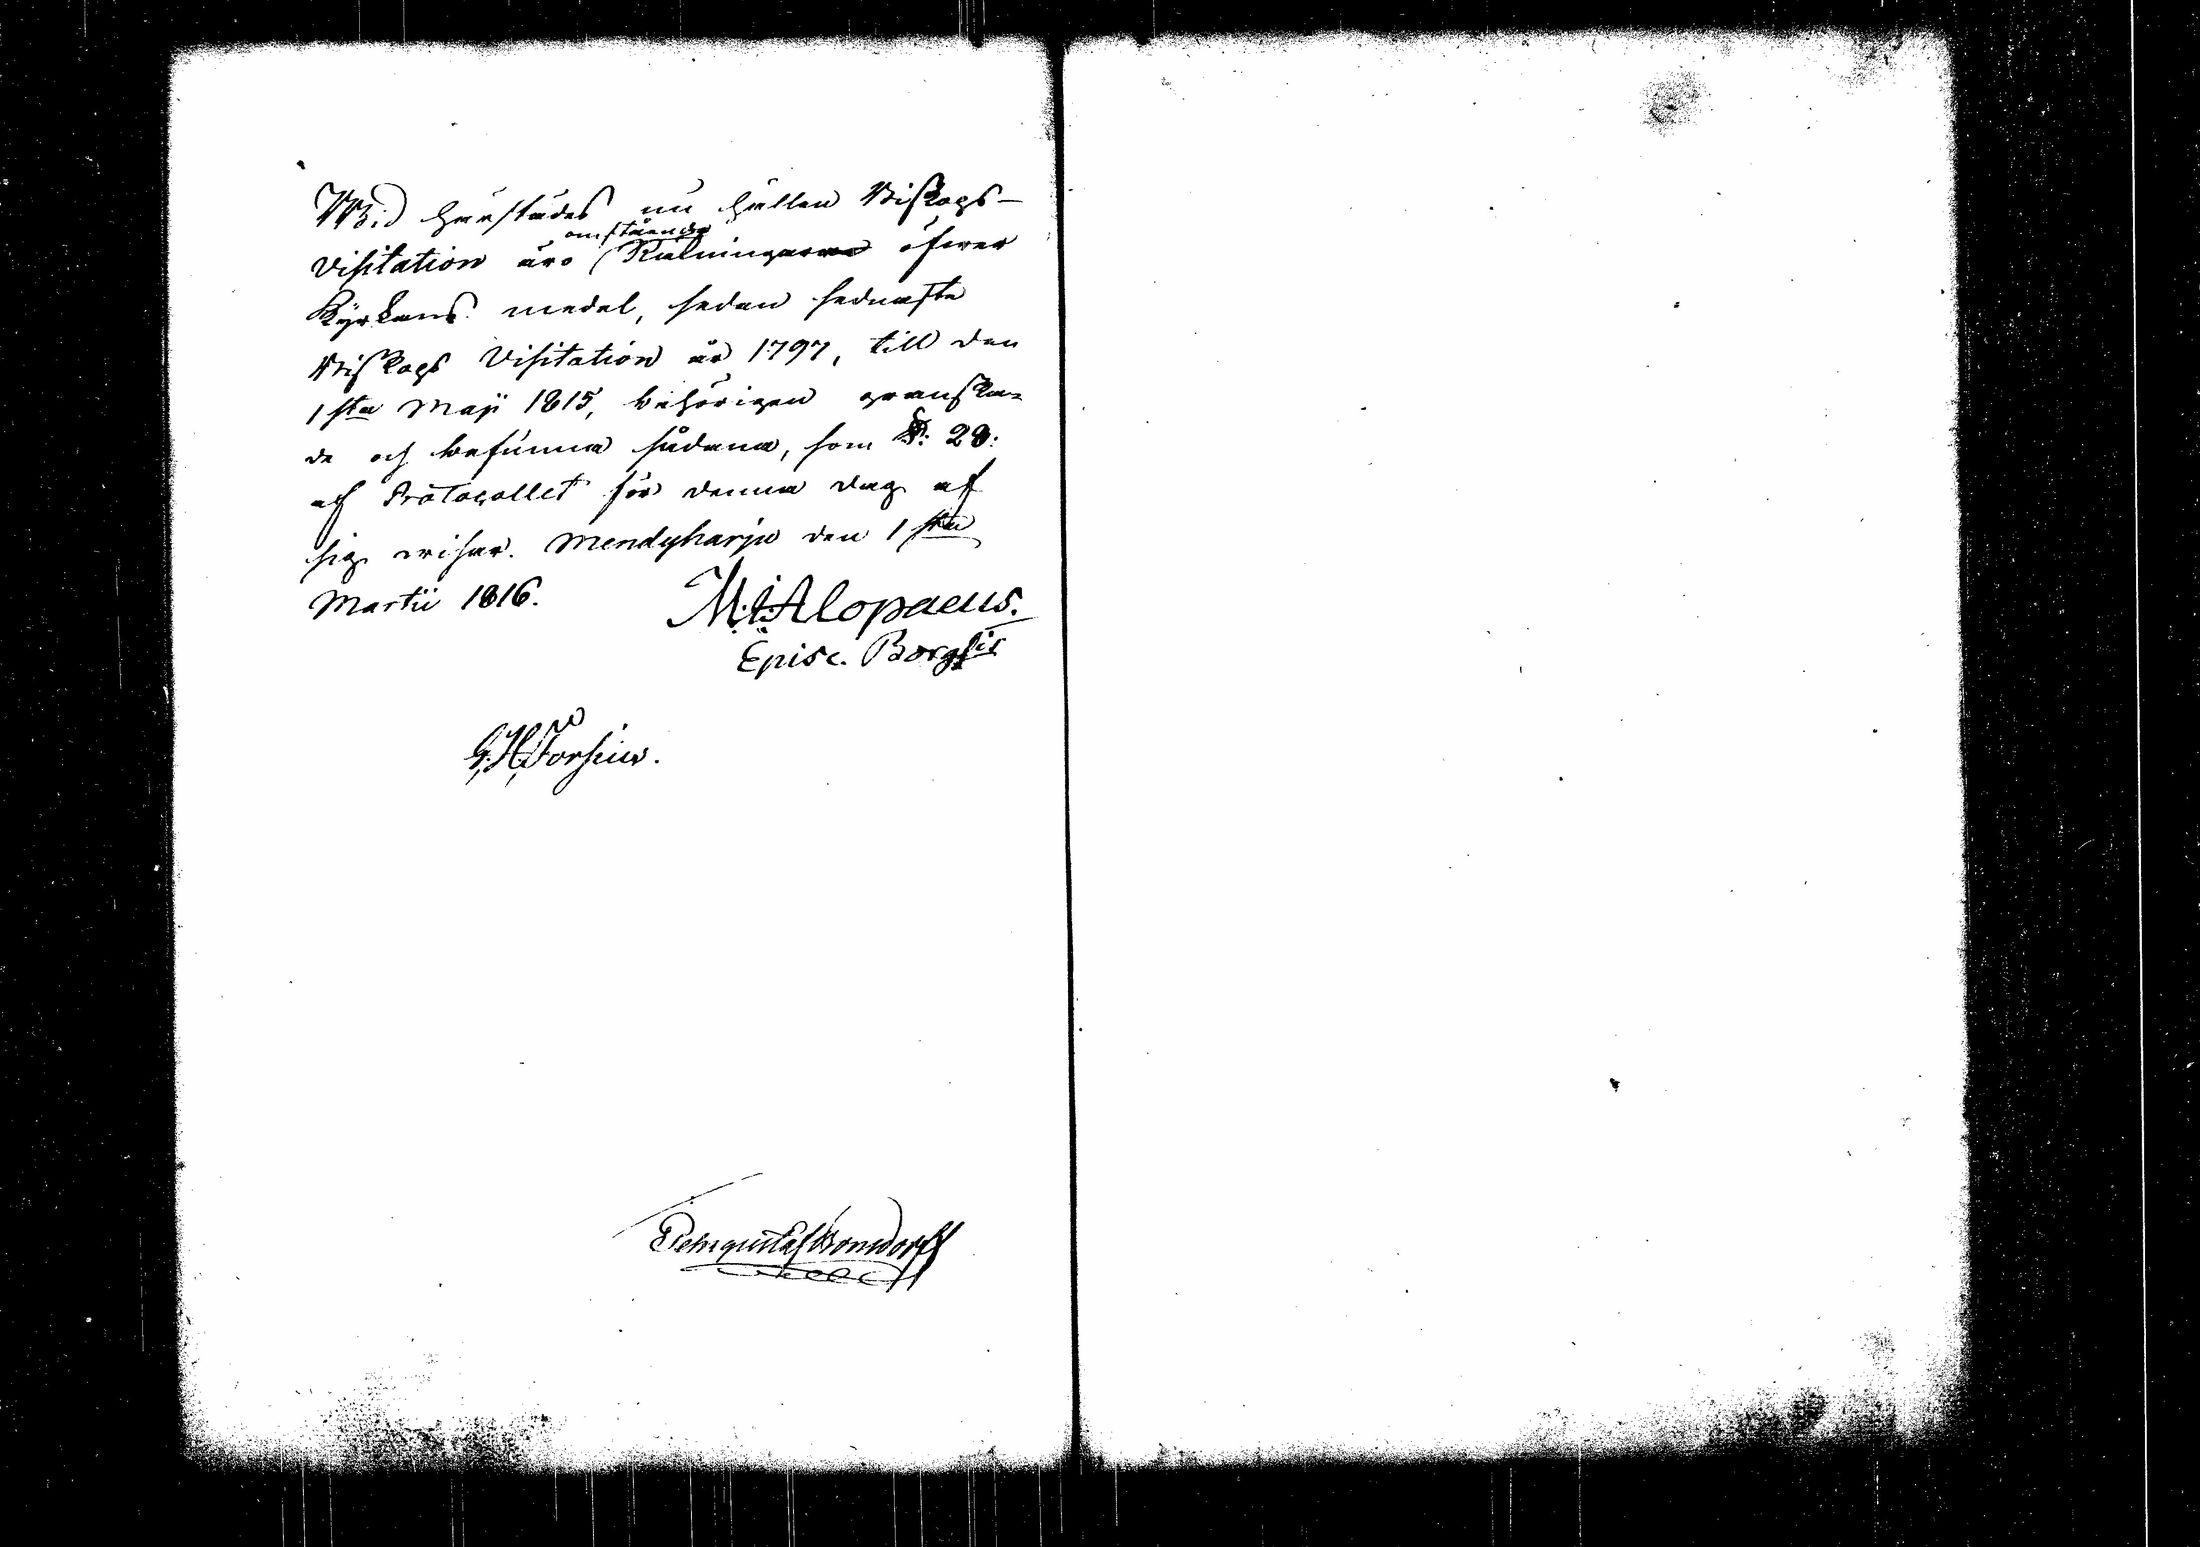 Wid härstädes nu hållen Biskops-
Visitation äro omstående Räkningar öfwer
Kyrkans medel, sedan sednaste
Biskops Visitation år 1797, till den
1sta Maji 1815, behörigen granska-
de och befunna sådana, som §: 28:
af Protocollet för denna dag af
sig wisar. Mendyharju den 1sta
Martii 1816.
M. Alopaeus.
Episc. Borgsis
G. H. Forsius.
Pehr Gustaf Bonsdorff